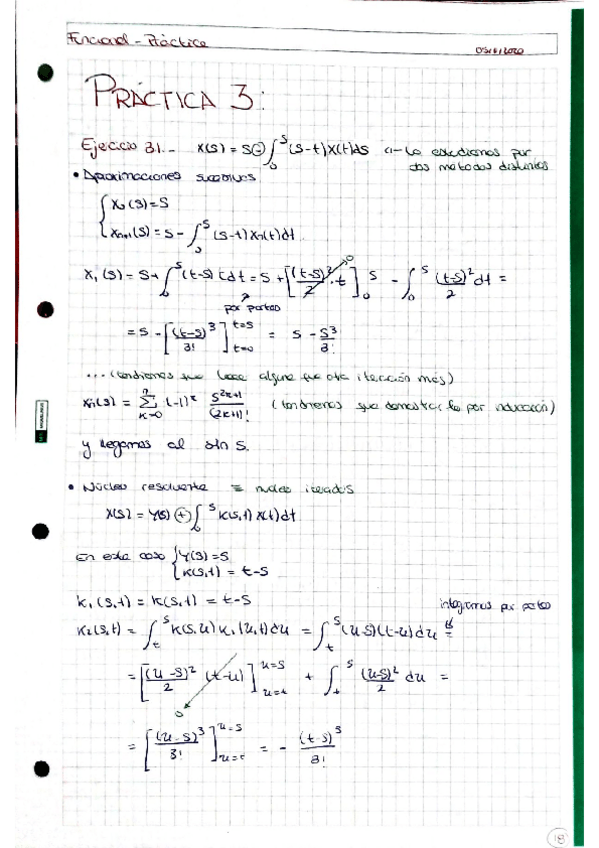 Funcional - Práctica
05/11/2020
PRÁCTICA 3:
Ejercicio 3.1.- X(s) = s ⊖ ∫₀ˢ (s-t)X(t)ds ← Lo estudiamos por
dos métodos distintos
• Aproximaciones sucesivas
{ X₀(s) = s
Xₙ₊₁(s) = s - ∫₀ˢ (s-t) Xₙ(t)dt.
X₁(s) = s + ∫₀ˢ (t-s) t dt = s + [ (t-s)²/2 · t ]₀ˢ - ∫₀ˢ (t-s)²/2 dt =
0
por partes
= s - [ (t-s)³/3! ]ₜ₌₀ᵗ⁼ˢ = s - s³/3!
... (tendríamos que hacer alguna que otra iteración más)
Xₙ(s) = Σₖ₌₀ⁿ (-1)ᵏ s²ᵏ⁺¹/(2k+1)! (tendremos que demostrarlo por inducción)
y llegamos al sin s.
• Núcleo resolvente ≡ núcleos iterados
X(s) = y(s) ⊕ ∫₀ˢ K(s,t) X(t)dt
En este caso { y(s) = s
K(s,t) = t-s
K₁(s,t) = K(s,t) = t-s
integramos por partes
K₂(s,t) = ∫ₜˢ K(s,u) K₁(u,t)du = ∫ₜˢ (u-s)(t-u)du =
= [ (u-s)²/2 (t-u) ]ᵤ₌ₜᵘ⁼ˢ + ∫ₜˢ (u-s)²/2 du =
0
= [ (u-s)³/3! ]ᵤ₌ₜᵘ⁼ˢ = - (t-s)³/3!
18